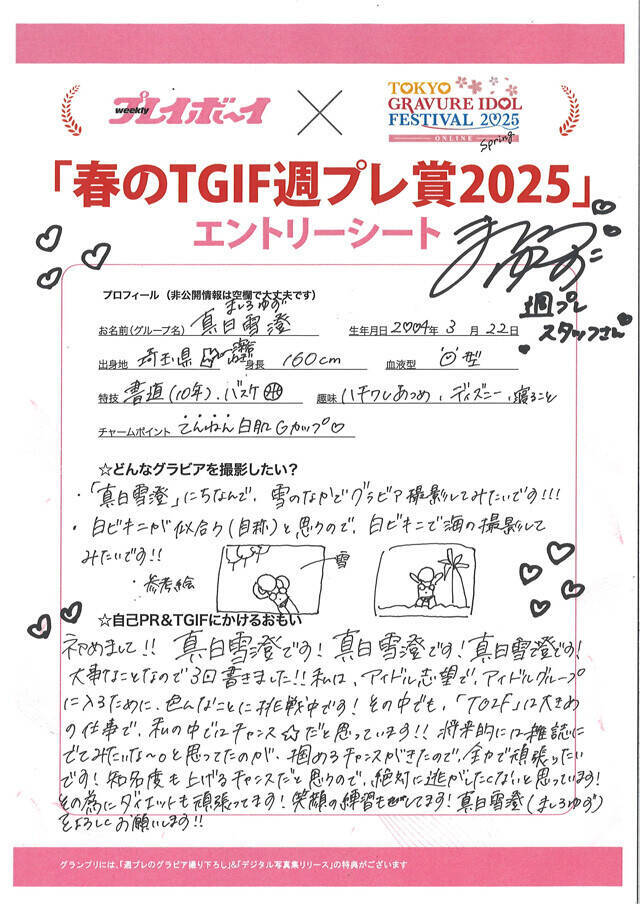 weekly プレイボーイ × TOKYO GRAVURE IDOL FESTIVAL 2025
ONLINE
Spring
「春のTGIF週プレ賞2025」
エントリーシート
ましろゆず
週プレ
スタッフさん
プロフィール（非公開情報は空欄で大丈夫です）
ましろゆず
お名前(グループ名) 真白雪澄 生年月日 2004年 3月 22日
出身地 埼玉県 身長 160cm 血液型 O型
特技 書道(10年)、バスケ 趣味 ハチワレあつめ、ディズニー、寝ること
チャームポイント てんねん白肌Gカップ♡
☆どんなグラビアを撮影したい？
・「真白雪澄」にちなんで、雪のなかでグラビア撮影してみたいです!!!
・白ビキニが似合う(自称)と思うので、白ビキニで海の撮影して
みたいです!!
・参考絵
雪
☆自己PR&TGIFにかけるおもい
初めまして!! 真白雪澄です! 真白雪澄です! 真白雪澄です!
大事なことなので3回書きました!! 私は、アイドル志望で、アイドルグループ
に入るために、色んなことに挑戦中です! その中でも、「TGIF」は大きめ
の仕事で、私の中ではチャンス☆だと思っています!! 将来的には雑誌に
でてみたいな〜。と思ってたのが、掴めるチャンスがきたので、全力で頑張りたい
です! 知名度も上げるチャンスだと思うので、絶対に逃がしたくないと思っています!
その為にダイエットも頑張ってます! 笑顔の練習もしてます! 真白雪澄(ましろゆず)
をよろしくお願いします!!
グランプリには、「週プレのグラビア撮り下ろし」&「デジタル写真集リリース」の特典がございます